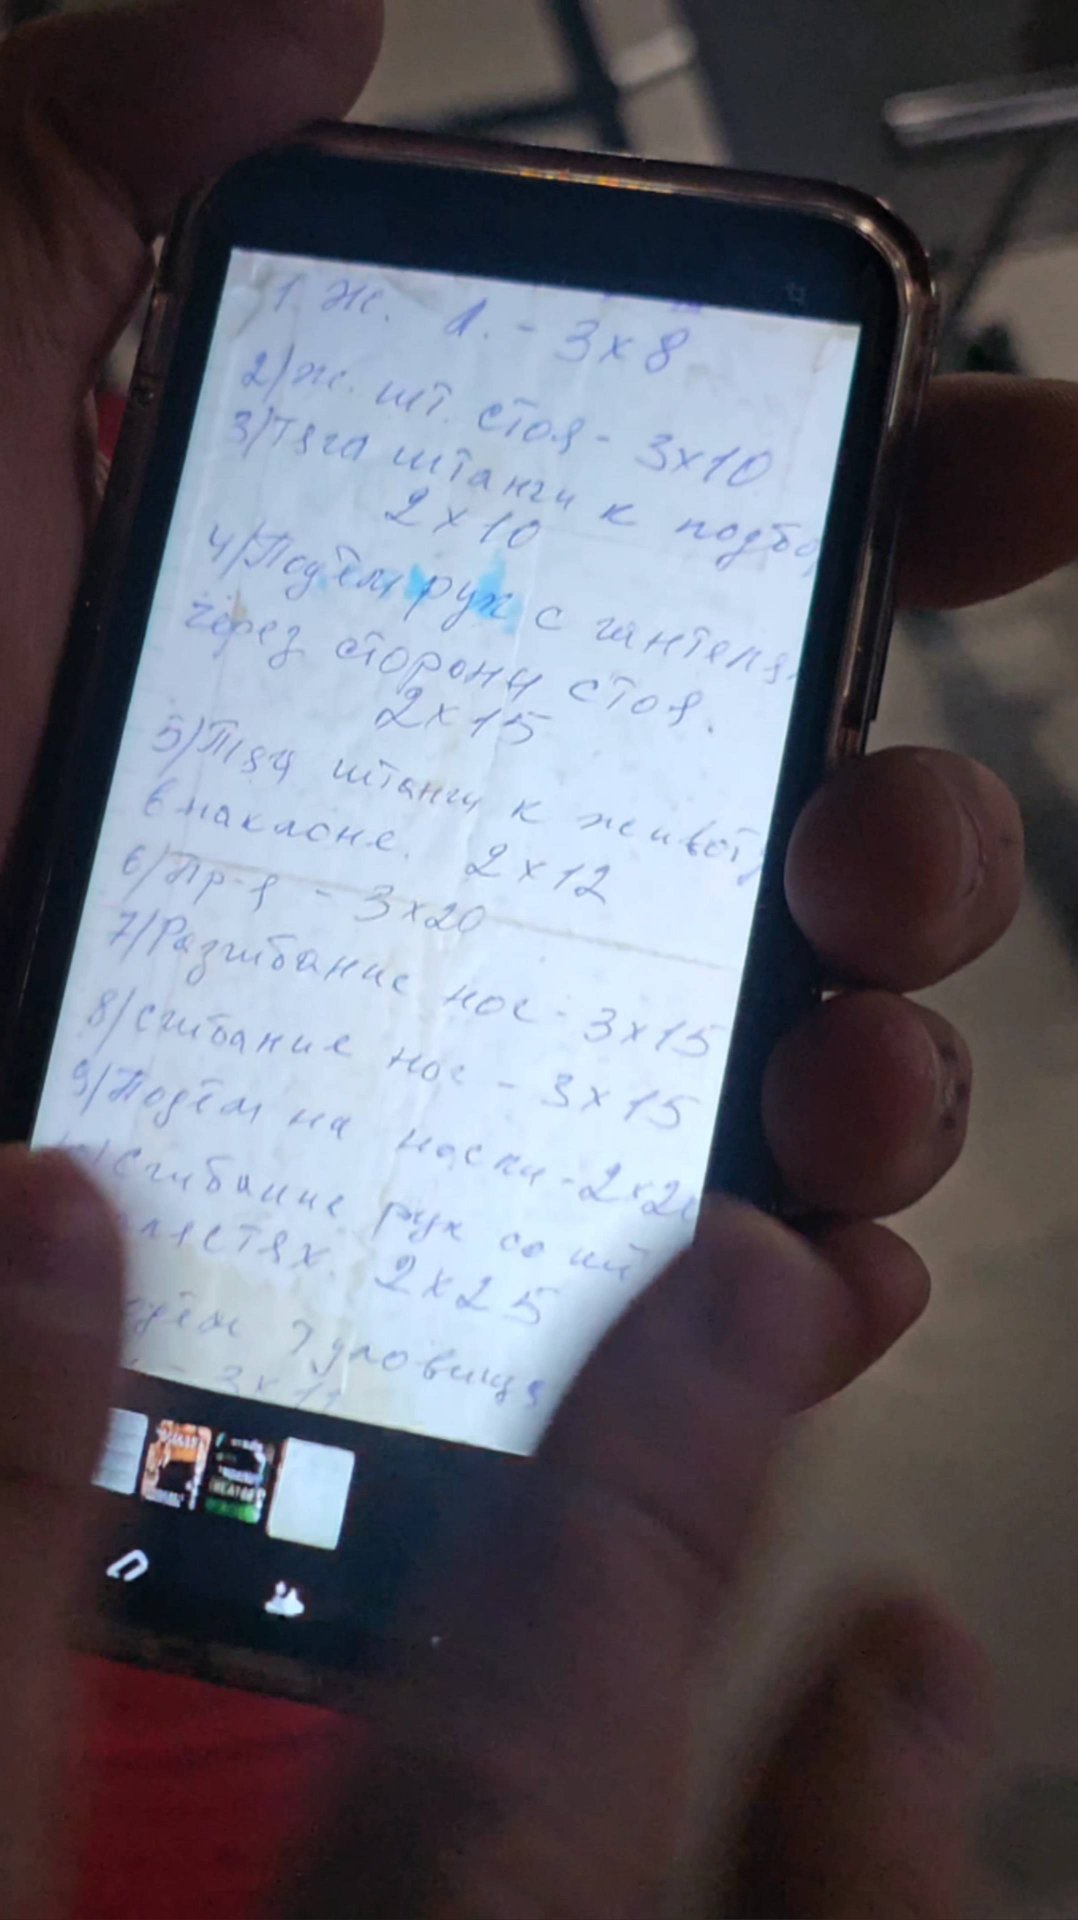 1. Ж. л. - 3х8
2) Ж. шт. стоя - 3х10
3) Тяга штанги к подбо
2х10
4) Подъём рук с гантеля
через стороны стоя.
2х15
5) Тяга штанги к животу
в наклоне. 2х12
6) Пр-я - 3х20
7) Разгибание ног - 3х15
8) Сгибание ног - 3х15
9) Подъём на носки - 2х20
Сгибание рук со шт
2х25
туловища
- 3х